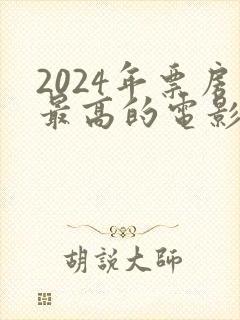 2024年票房
最高的电影
胡說大師